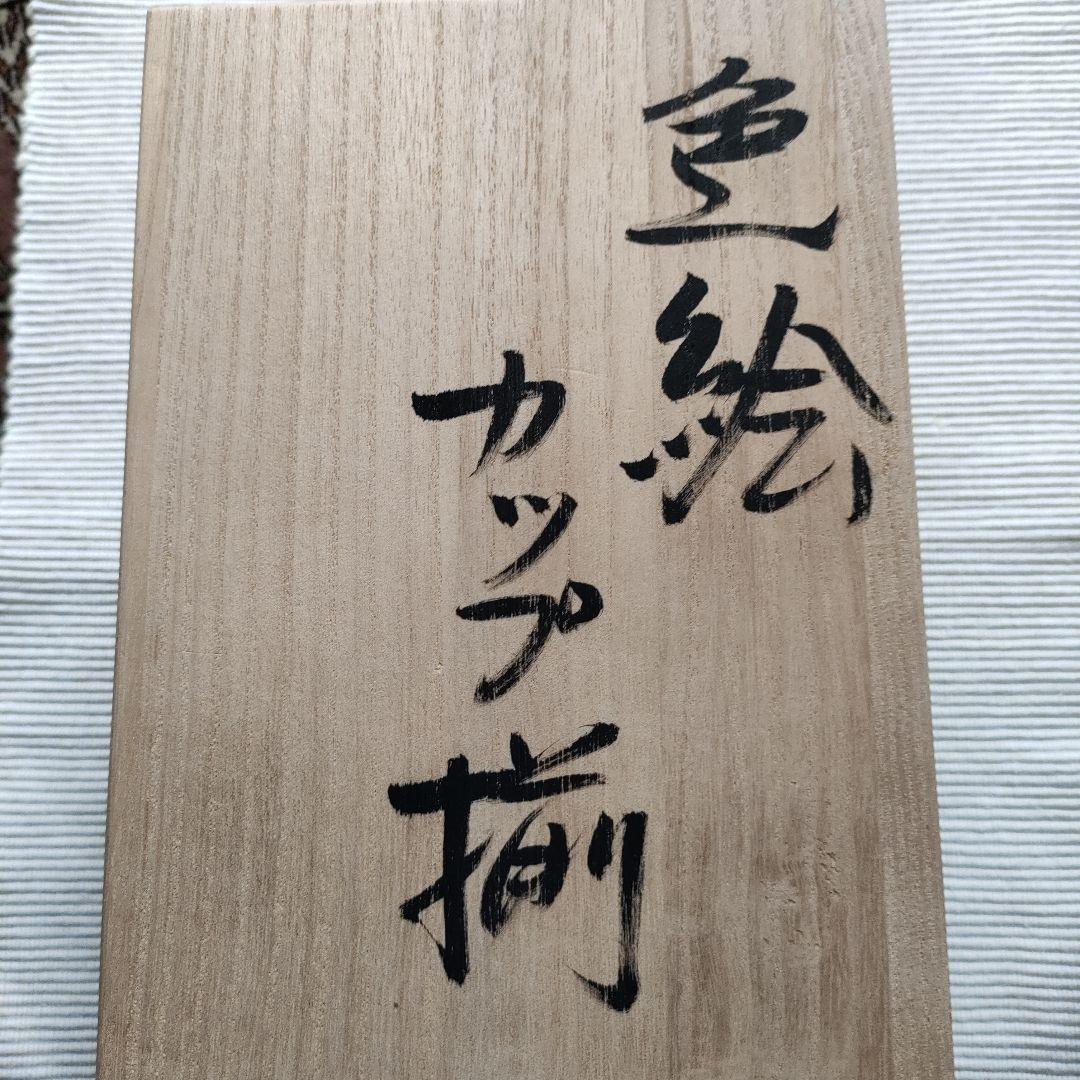 色絵
カップ揃